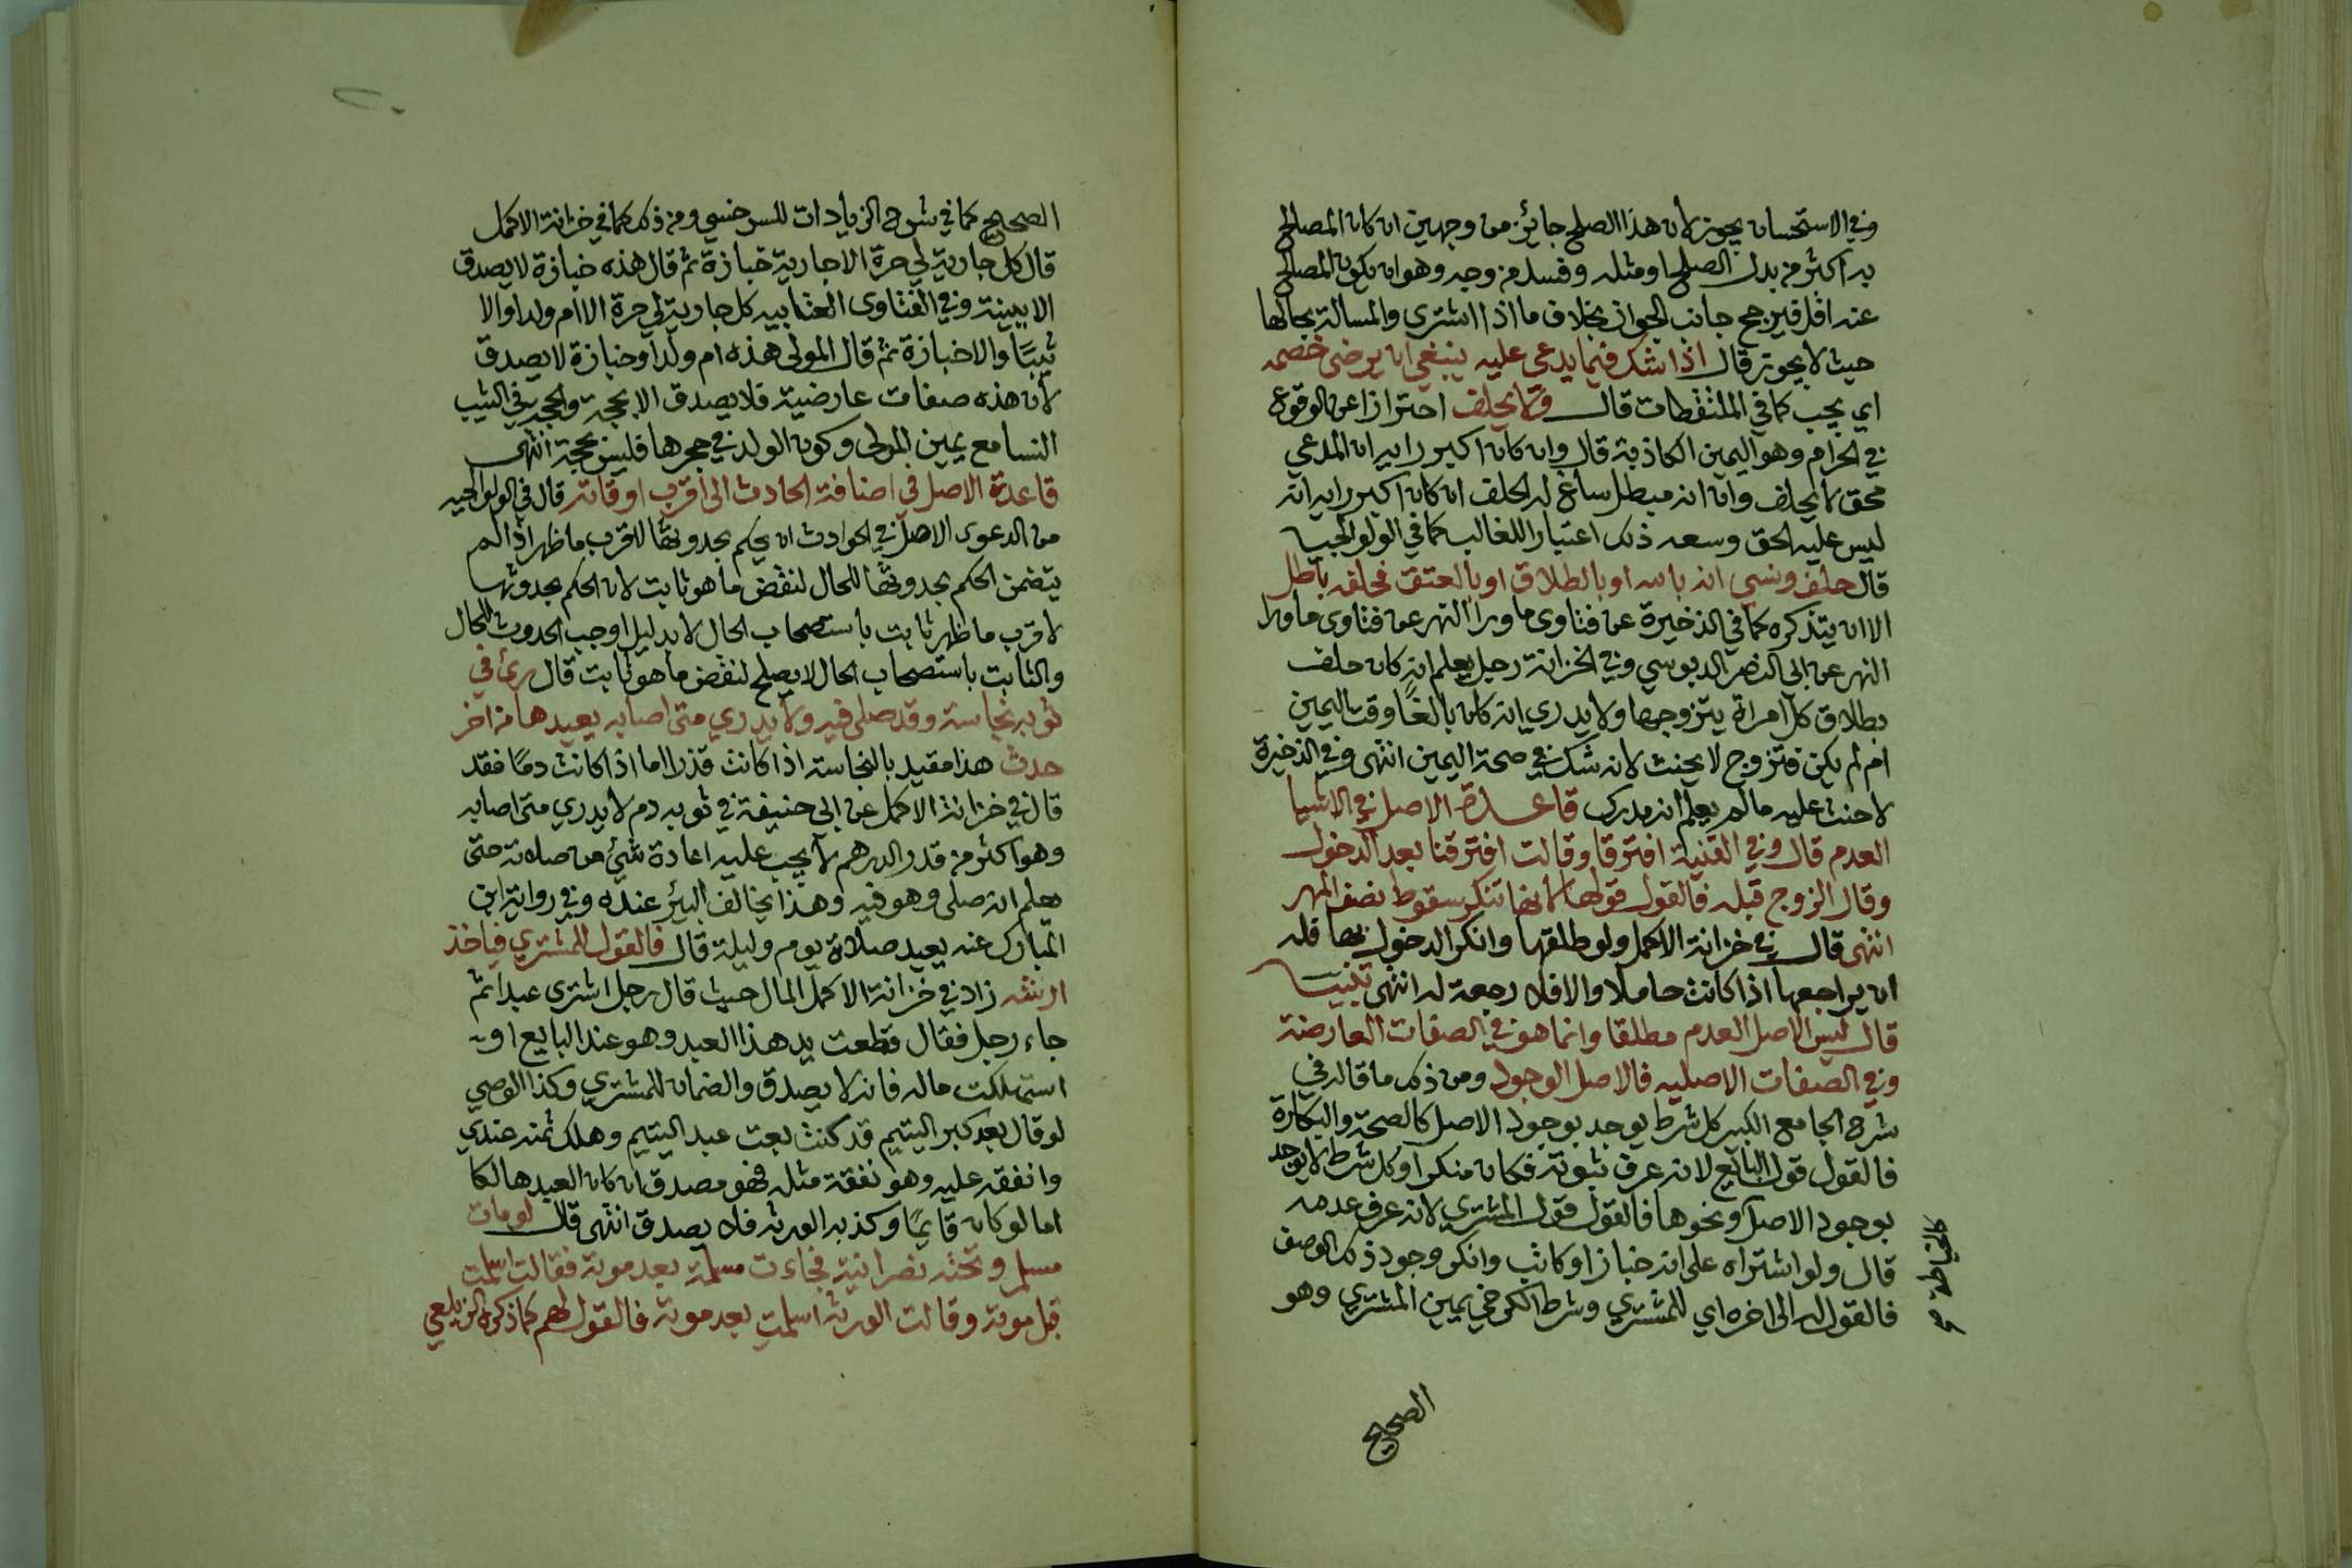 وفي الاستحسان يجوز لأن هذا الصلح جائز من وجهين ان كان المصالح
به اكثر من بدل الصلح او مثله وفسد من وجه وهو ان يكون المصالح
عنه اقل فيرجح جانب الجواز بخلاف ما اذا اشترى والمسالة بحالها
حيث لا يجوز قال اذا شك فيما يدعى عليه ينبغي ان يرضى خصمه
اي يجب كما في الملتقطات قال ولا يحلف احترازا عن الوقوع
في الحرام وهو اليمين الكاذبة قال وان كان اكبر رايه ان المدعي
محق لا يحلف وان انه مبطل ساغ له الحلف ان كان اكبر رايه انه
ليس عليه الحق وسعه ذلك اعتبارا للغالب كما في الولوالجيه
قال حلف ونسي انه بالله او بالطلاق او بالعتق فحلفه باطل
الا ان يتذكره كما في الذخيرة عن فتاوى ما ورا النهر عن فتاوى ما ورا
النهر عن ابي النصر الدبوسي وفي الخزانة رجل يعلم انه كان حلف
بطلاق كل امراة يتزوجها ولا يدري انه كان بالغًا وقت اليمين
ام لم يكن فتزوج لا يحنث لانه شك في صحة اليمين انتهى وفي الذخيرة
لا حنث عليه ما لم يعلم انه مدرك قاعدة الاصل في الاشيا
العدم قال وفي القنية افترقا وقالت افترقنا بعد الدخول
وقال الزوج قبله فالقول قولها لأنها تنكر سقوط نصف المهر
انتهى قال في خزانة الاكمل ولو طلقها وانكر الدخول بها فله
ان يراجعها اذا كانت حاملا والا فلا رجعة له انتهى تنبيه
قال ليس الاصل العدم مطلقا وانما هو في الصفات العارضة
وفي الصفات الاصليه فالاصل الوجود ومن ذلك ما قاله في
شرح الجامع الكبير كل شرط يوجد بوجود الاصل كالصحة والبكارة
فالقول قول البائع لانه عرف ثبوته فكان منكرا وكل شرط لا يوجد
بوجود الاصل ونحوها فالقول قول المشتري لانه عرف عدمه
قال ولو اشتراه على انه خبازا وكاتب وانكر وجود ذلك الوصف
فالقول له الى اخره اي للمشتري وشرط الكرخي يمين المشتري وهو
كالخياطة صح
الصحيح
الصحيح كما في شرح الزيادات للسرخسي ومن ذلك كما في خزانة الاكمل
قال كل جارية لي حرة الا جارية خبازة ثم قال هذه خبازة لا يصدق
الا ببينة وفي الفتاوى العتابيه كل جارية لي حرة الا ام ولد او الا
ثيبًا والا خبازة ثم قال المولى هذه ام ولد او خبازة لا يصدق
لأن هذه صفات عارضية فلا يصدق الا بحجة والحجة في الثيب
النسا مع يمين المولى وكون الولد في حجرها فليس بحجة انتهى
قاعدة الاصل في اضافة الحادث الى اقرب اوقاته قال في الولوالجيه
من الدعوى الاصل في الحوادث ان يحكم بحدوثها لاقرب ما ظهر اذا لم
يتضمن الحكم بحدوثها للحال لنقض ما هو ثابت لان الحكم بحدوثها
لاقرب ما ظهر ثابت باستصحاب الحال لا بدليل اوجب الحدوث للحال
والثابت باستصحاب الحال لا يصلح لنقض ما هو ثابت قال رئ في
ثوبه نجاسة وقد صلى فيه ولا يدري متى اصابه يعيدها من اخر
حدث هذا مقيد بالنجاسة اذا كانت قذرا اما اذا كانت دمًا فقد
قال في خزانة الاكمل عن ابي حنيفة في ثوبه دم لا يدري متى اصابه
وهو اكثر من قدر الدرهم لا يجب عليه اعادة شئ من صلاته حتى
يعلم انه صلى وهو فيه وهذا يخالف البئر عنده وفي رواية ابن
المبارك عنه يعيد صلاة يوم وليلة قال فالقول للمشتري فياخذ
ارشه زاد في خزانة الاكمل المال حيث قال رجل اشترى عبدا ثم
جاء رجل فقال قطعت يد هذا العبد وهو عند البايع او
استهلكت ماله فانه لا يصدق والضمان للمشتري وكذا الوصي
لو قال بعد كبر اليتيم قد كنت بعت عبد اليتيم وهلك ثمنه عندي
وانفقه عليه وهو نفقة مثله فهو مصدق ان كان العبد هالكا
اما لو كان قايمًا وكذبه الورثه فلا يصدق انتهى قال لو مات
مسلم وتحته نصرانية فجاءت مسلمة بعد موته فقالت اسلمت
قبل موته وقالت الورثه اسلمت بعد موته فالقول لهم كما ذكره الزيلعي